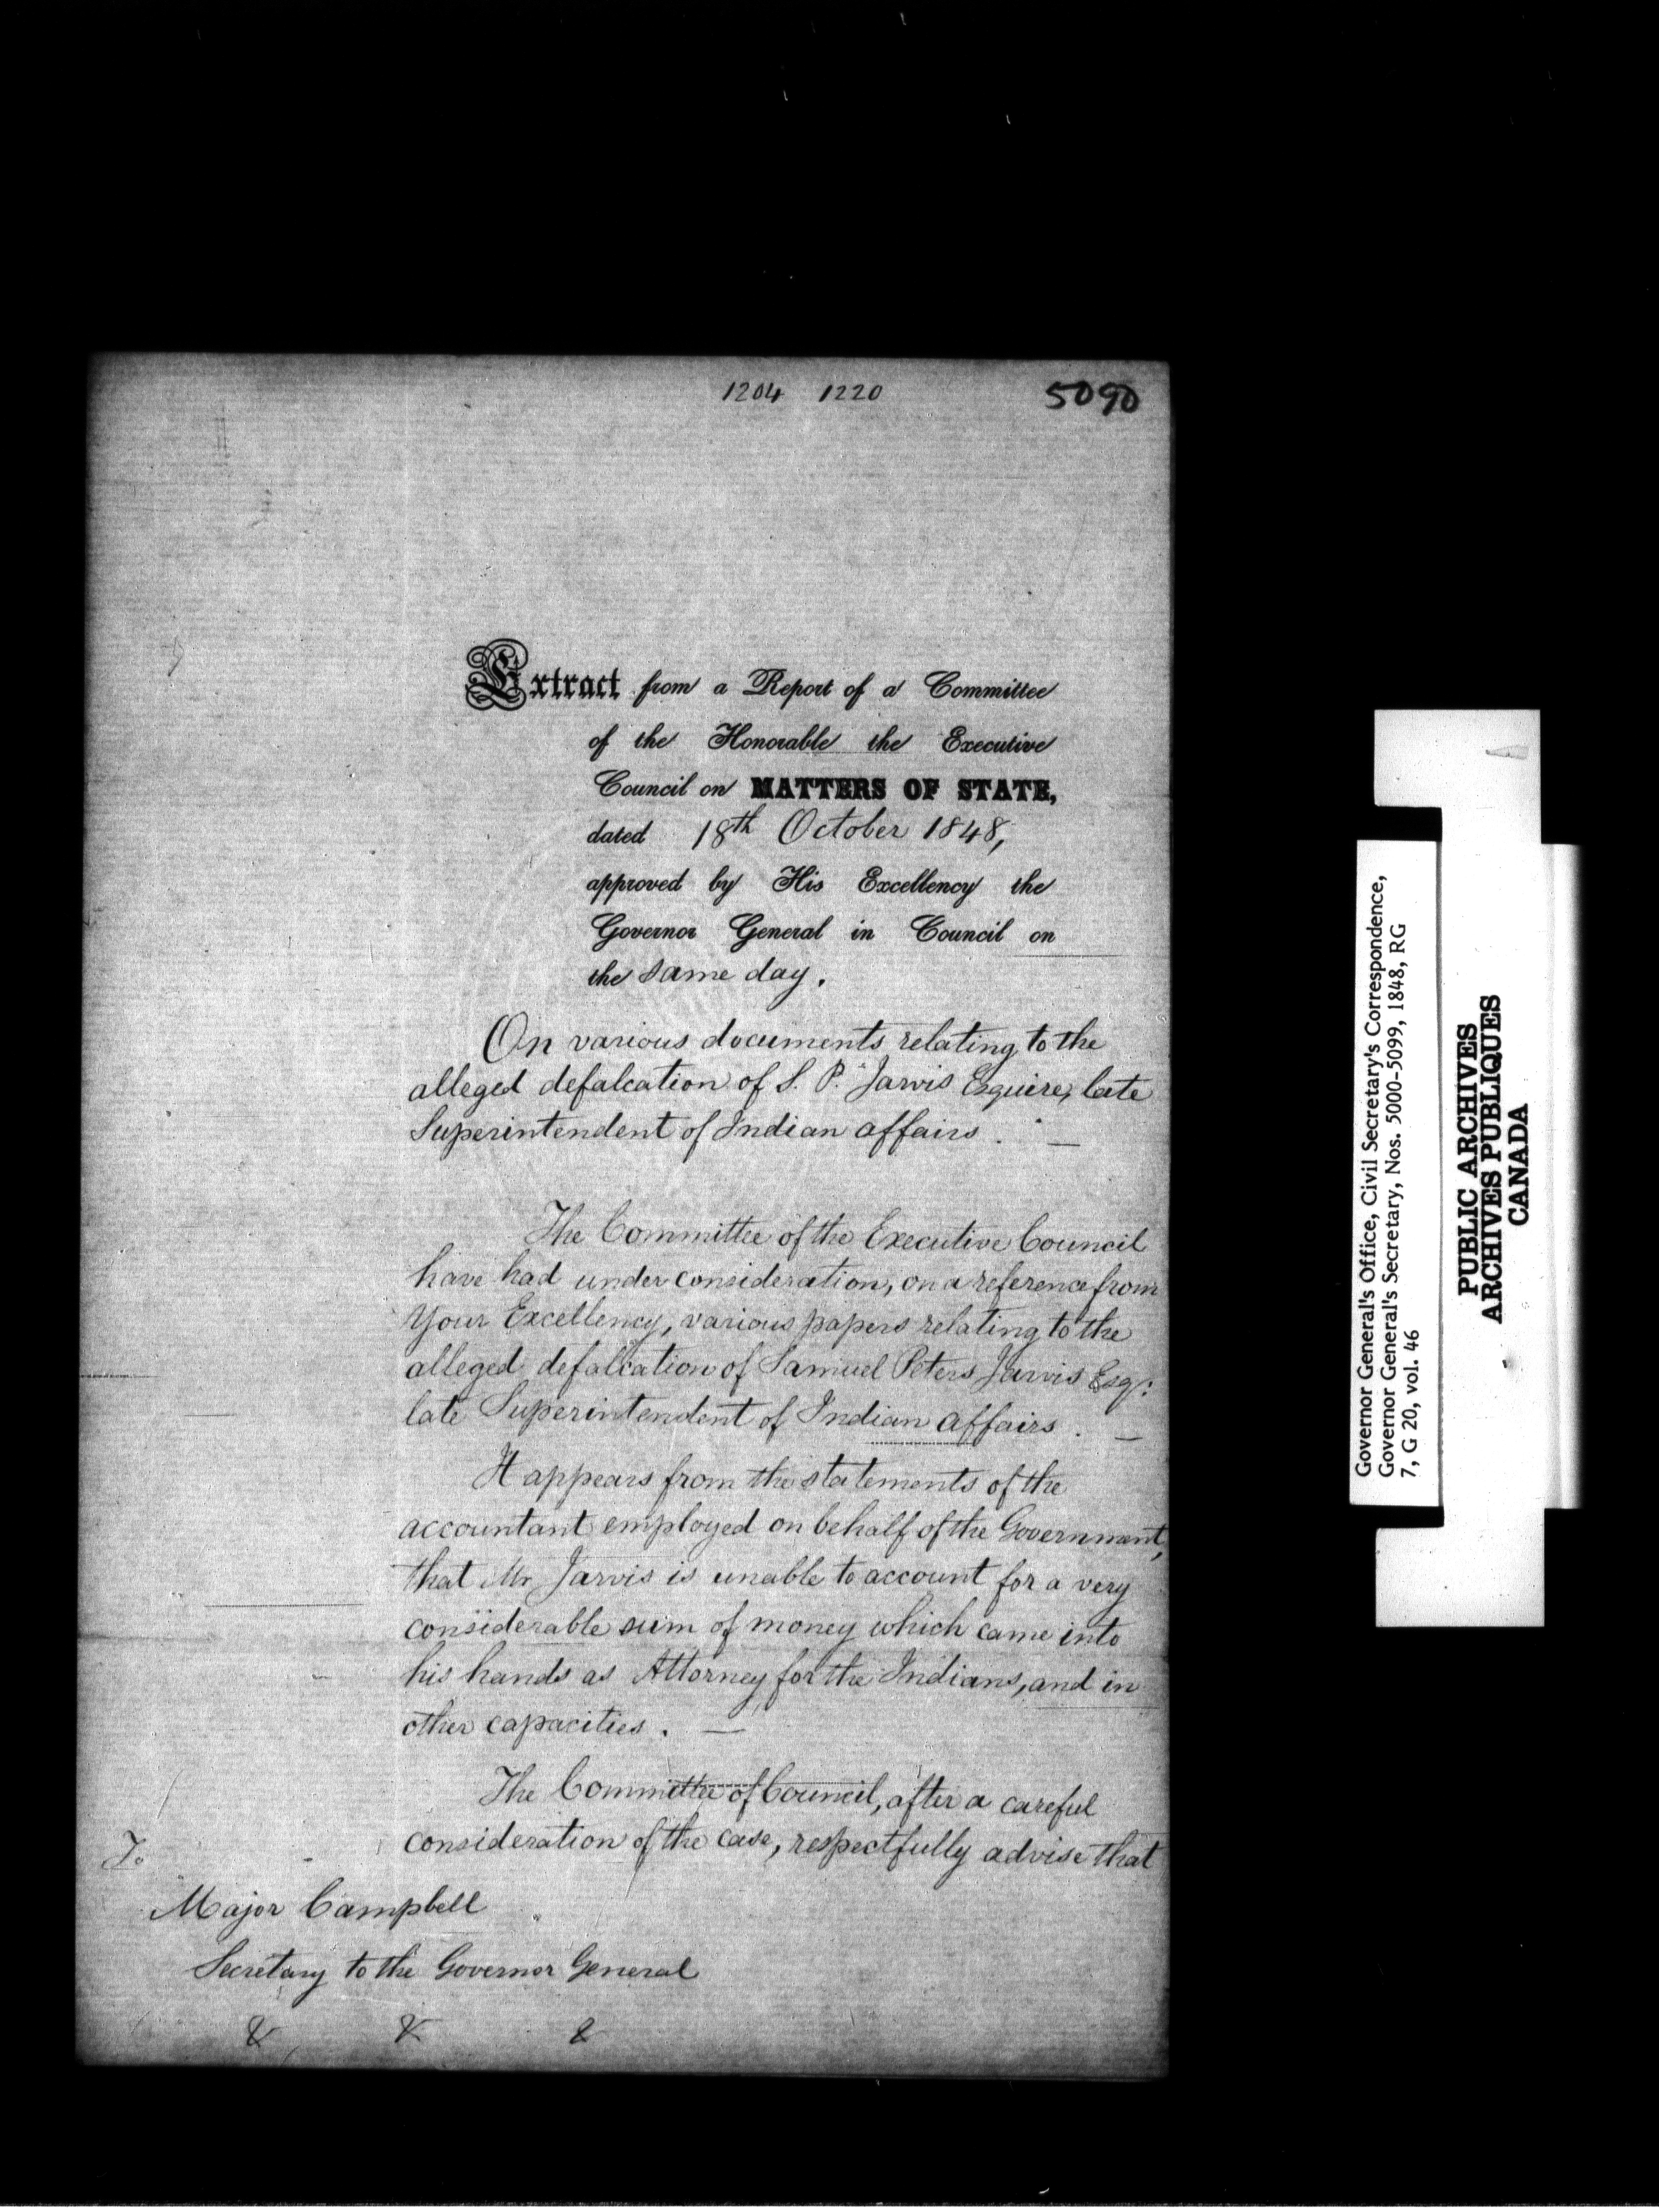 1204 1220 5090
Extract from a Report of a Committee
of the Honorable the Executive
Council on MATTERS OF STATE,
dated 18th October 1848,
approved by His Excellency the
Governor General in Council on
the same day.
On various documents relating to the
alleged defalcation of S. P. Jarvis Esquire, late
Superintendent of Indian affairs. —
The Committee of the Executive Council
have had under consideration, on a reference from
Your Excellency, various papers relating to the
alleged defalcation of Samuel Peters Jarvis Esqr:
late Superintendent of Indian affairs. —
It appears from the statements of the
accountant employed on behalf of the Government,
that Mr Jarvis is unable to account for a very
considerable sum of money which came into
his hands as Attorney for the Indians, and in
other capacities. —
The Committee of Council, after a careful
consideration of the case, respectfully advise that
To
Major Campbell
Secretary to the Governor General
& & &
Governor General's Office, Civil Secretary's Correspondence,
Governor General's Secretary, Nos. 5000-5099, 1848, RG
7, G 20, vol. 46
PUBLIC ARCHIVES
ARCHIVES PUBLIQUES
CANADA